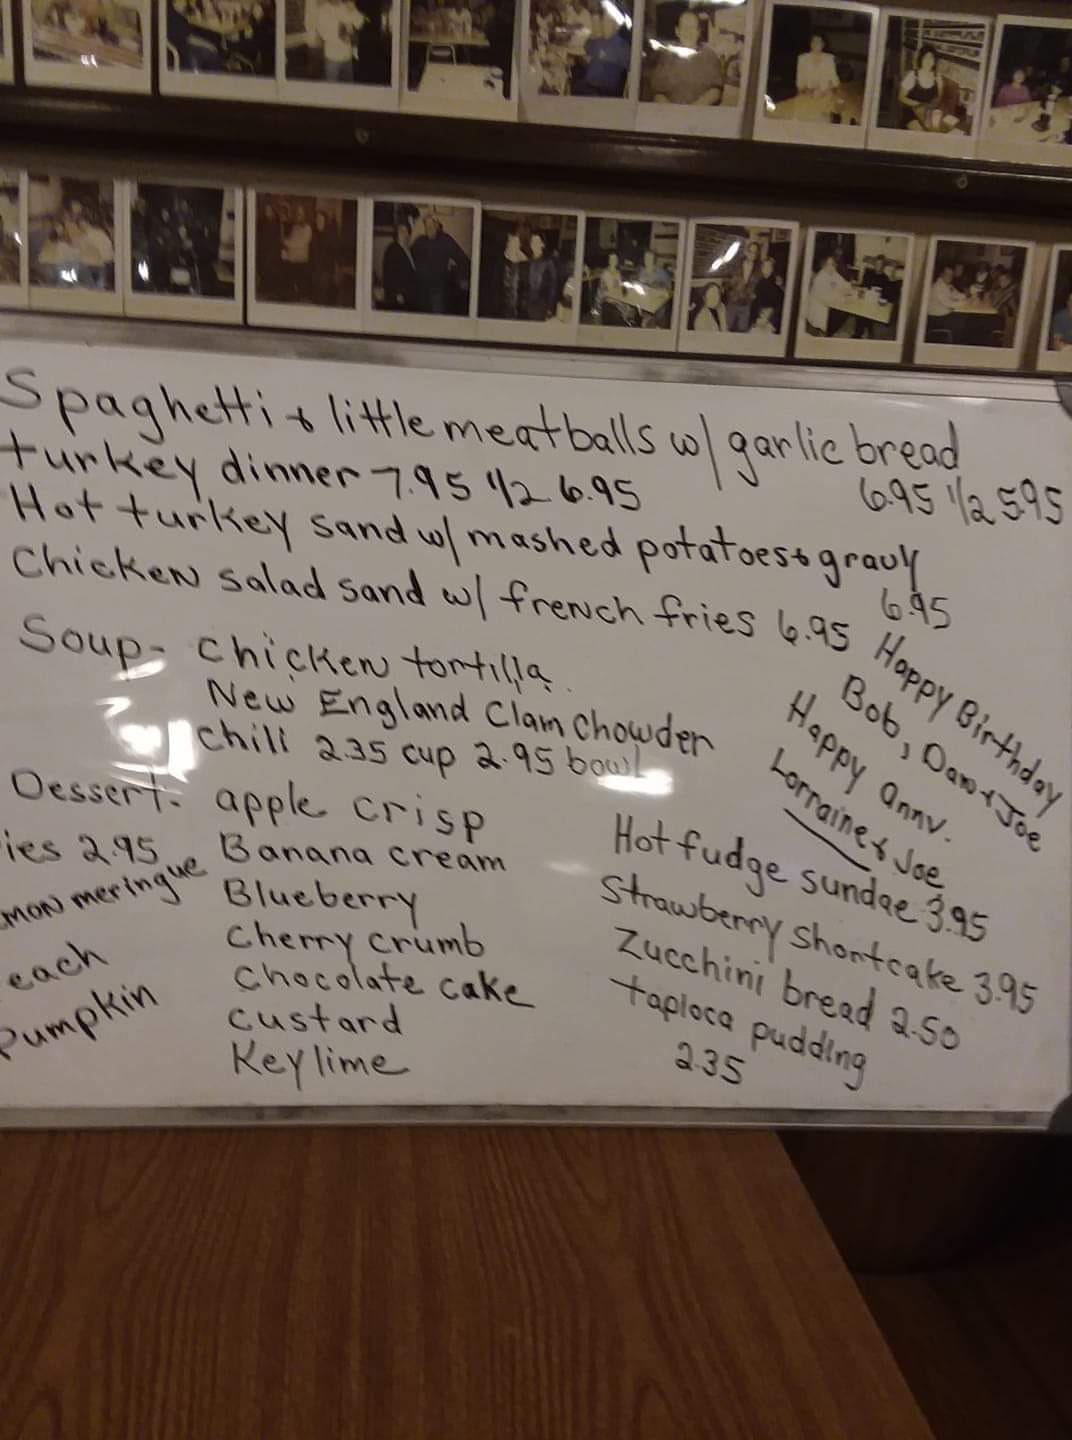 Spaghetti & little meatballs w/ garlic bread
6.95 1/2 5.95
turkey dinner 7.95 1/2 6.95
Hot turkey sand w/ mashed potatoes & gravy
6.95
Chicken salad sand w/ french fries 6.95
Soup- chicken tortilla
New England Clam Chowder
Chili 2.35 cup 2.95 bowl
Happy Birthday
Bob, Dan & Joe
Happy Annv.
Lorraine & Joe
Dessert- apple crisp
ies 2.95
mon meringue
each
Pumpkin
Banana cream
Blueberry
Cherry crumb
Chocolate cake
custard
Key lime
Hot fudge sundae 3.95
Strawberry Shortcake 3.95
Zucchini bread 2.50
tapioca pudding
2.35